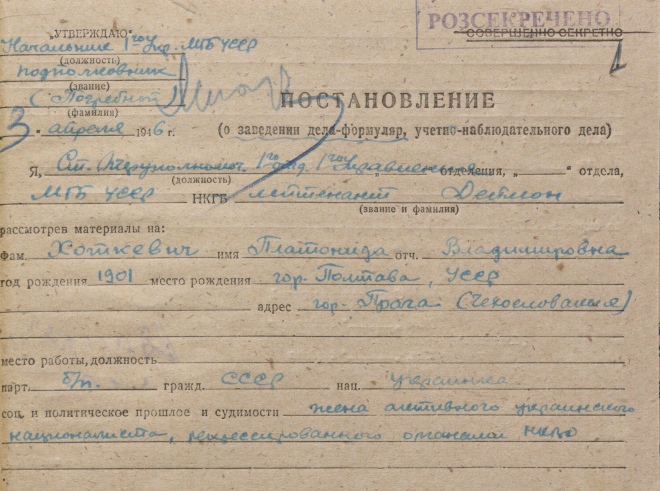 РОЗСЕКРЕЧЕНО
„УТВЕРЖДАЮ“
СОВЕРШЕННО СЕКРЕТНО
Начальник 1го Упр. МГБ УССР
(должность)
подполковник
(звание)
(Погребной)
(фамилия)
1
ПОСТАНОВЛЕНИЕ
3 апреля 1946 г.
(о заведении дела-формуляр, учетно-наблюдательного дела)
Я, Ст. Оперуполномоч. 1го отд. 1го Управления отделения, „ “ отдела,
(должность)
МГБ УССР НКГБ лейтенант
(звание и фамилия)
рассмотрев материалы на:
фам. Хоткевич имя Платонида отч. Владимировна
год рождения 1901 место рождения гор. Полтава, УССР
адрес гор. Прага (Чехословакия)
место работы, должность
парт. б/п. гражд. СССР нац. украинка
соц. и политическое прошлое и судимости жена активного украинского
националиста, репрессированного органами НКВД